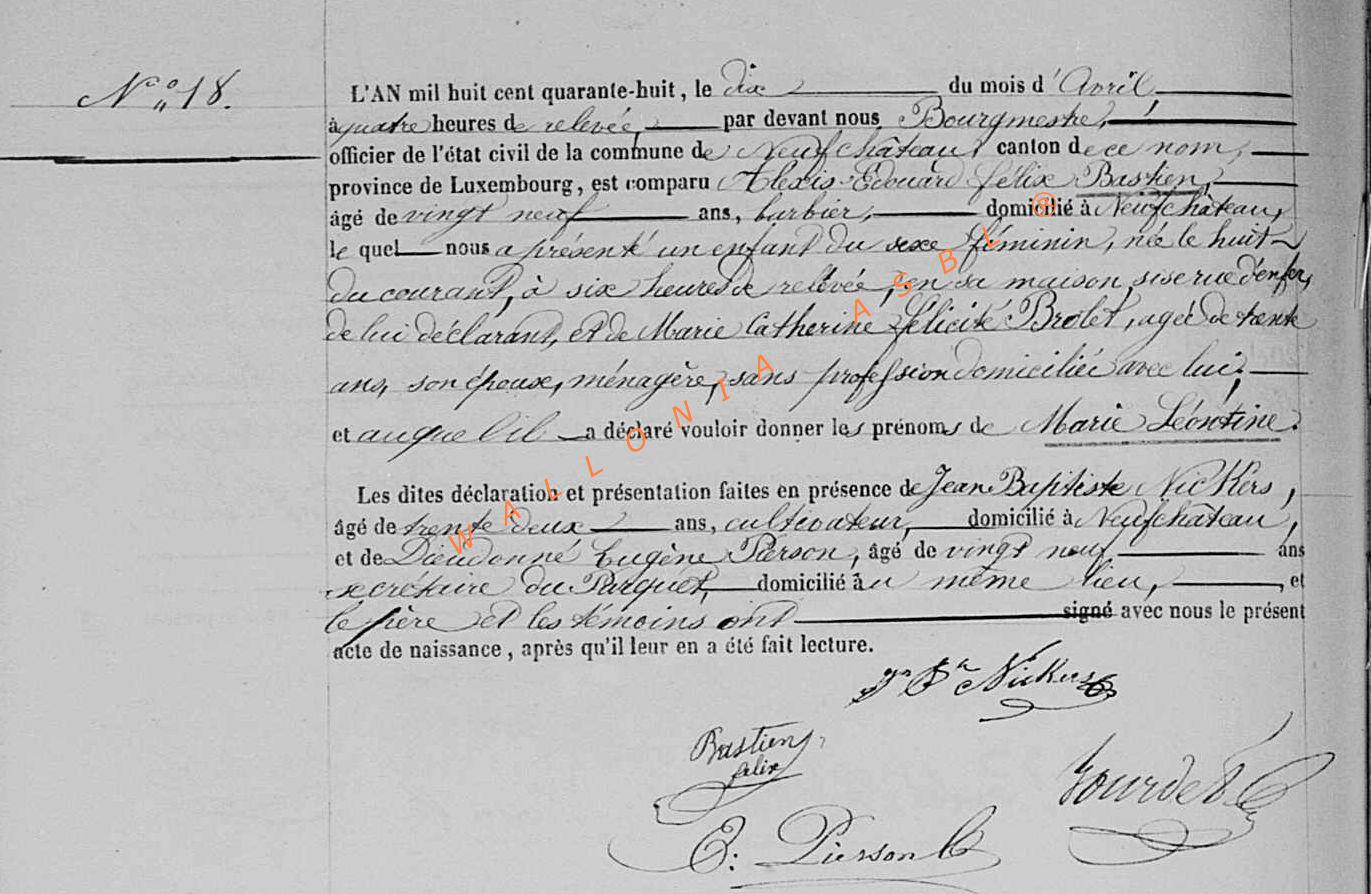 N° 18.
L'AN mil huit cent quarante-huit, le dix du mois d'Avril,
à quatre heures de relevée, par devant nous Bourgmestre,
officier de l'état civil de la commune de Neufchâteau, canton de ce nom,
province de Luxembourg, est comparu Alexis Edouard Félix Bastien,
âgé de vingt neuf ans, barbier, domicilié à Neufchâteau,
le quel nous a présenté un enfant du sexe féminin, née le huit
du courant, à six heures de relevée, en sa maison, sise rue d'enfer,
de lui déclarant, et de Marie Catherine Félicité Brolet, agée de trente
ans, son épouse, ménagère, sans profession domiciliée avec lui,
et auquel il a déclaré vouloir donner les prénoms de Marie Léontine.
Les dites déclaration et présentation faites en présence de Jean Baptiste Nickers,
âgé de trente deux ans, cultivateur, domicilié à Neufchâteau,
et de Dieudonné Eugène Pierson, âgé de vingt neuf ans
secrétaire du Parquet, domicilié au même lieu, et
le père et les témoins ont signé avec nous le présent
acte de naissance, après qu'il leur en a été fait lecture.
Jn Bte Nickers
Bastien
felix
E: Pierson
WALLONIA ASBL ®